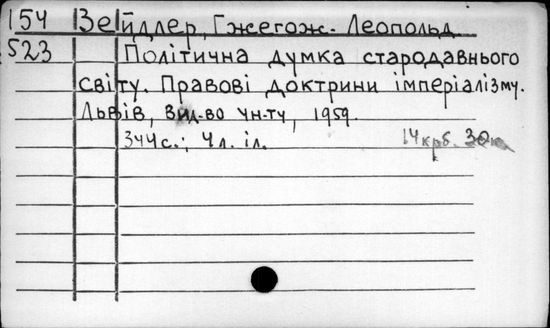 154 Зейдлер, Гжегож-Леопольд
523 Політична думка стародавнього
світу. Правові доктрини імперіалізму.
Львів, Вид-во ун-ту, 1959.
344с.; 4л. іл. 14крб. 30к